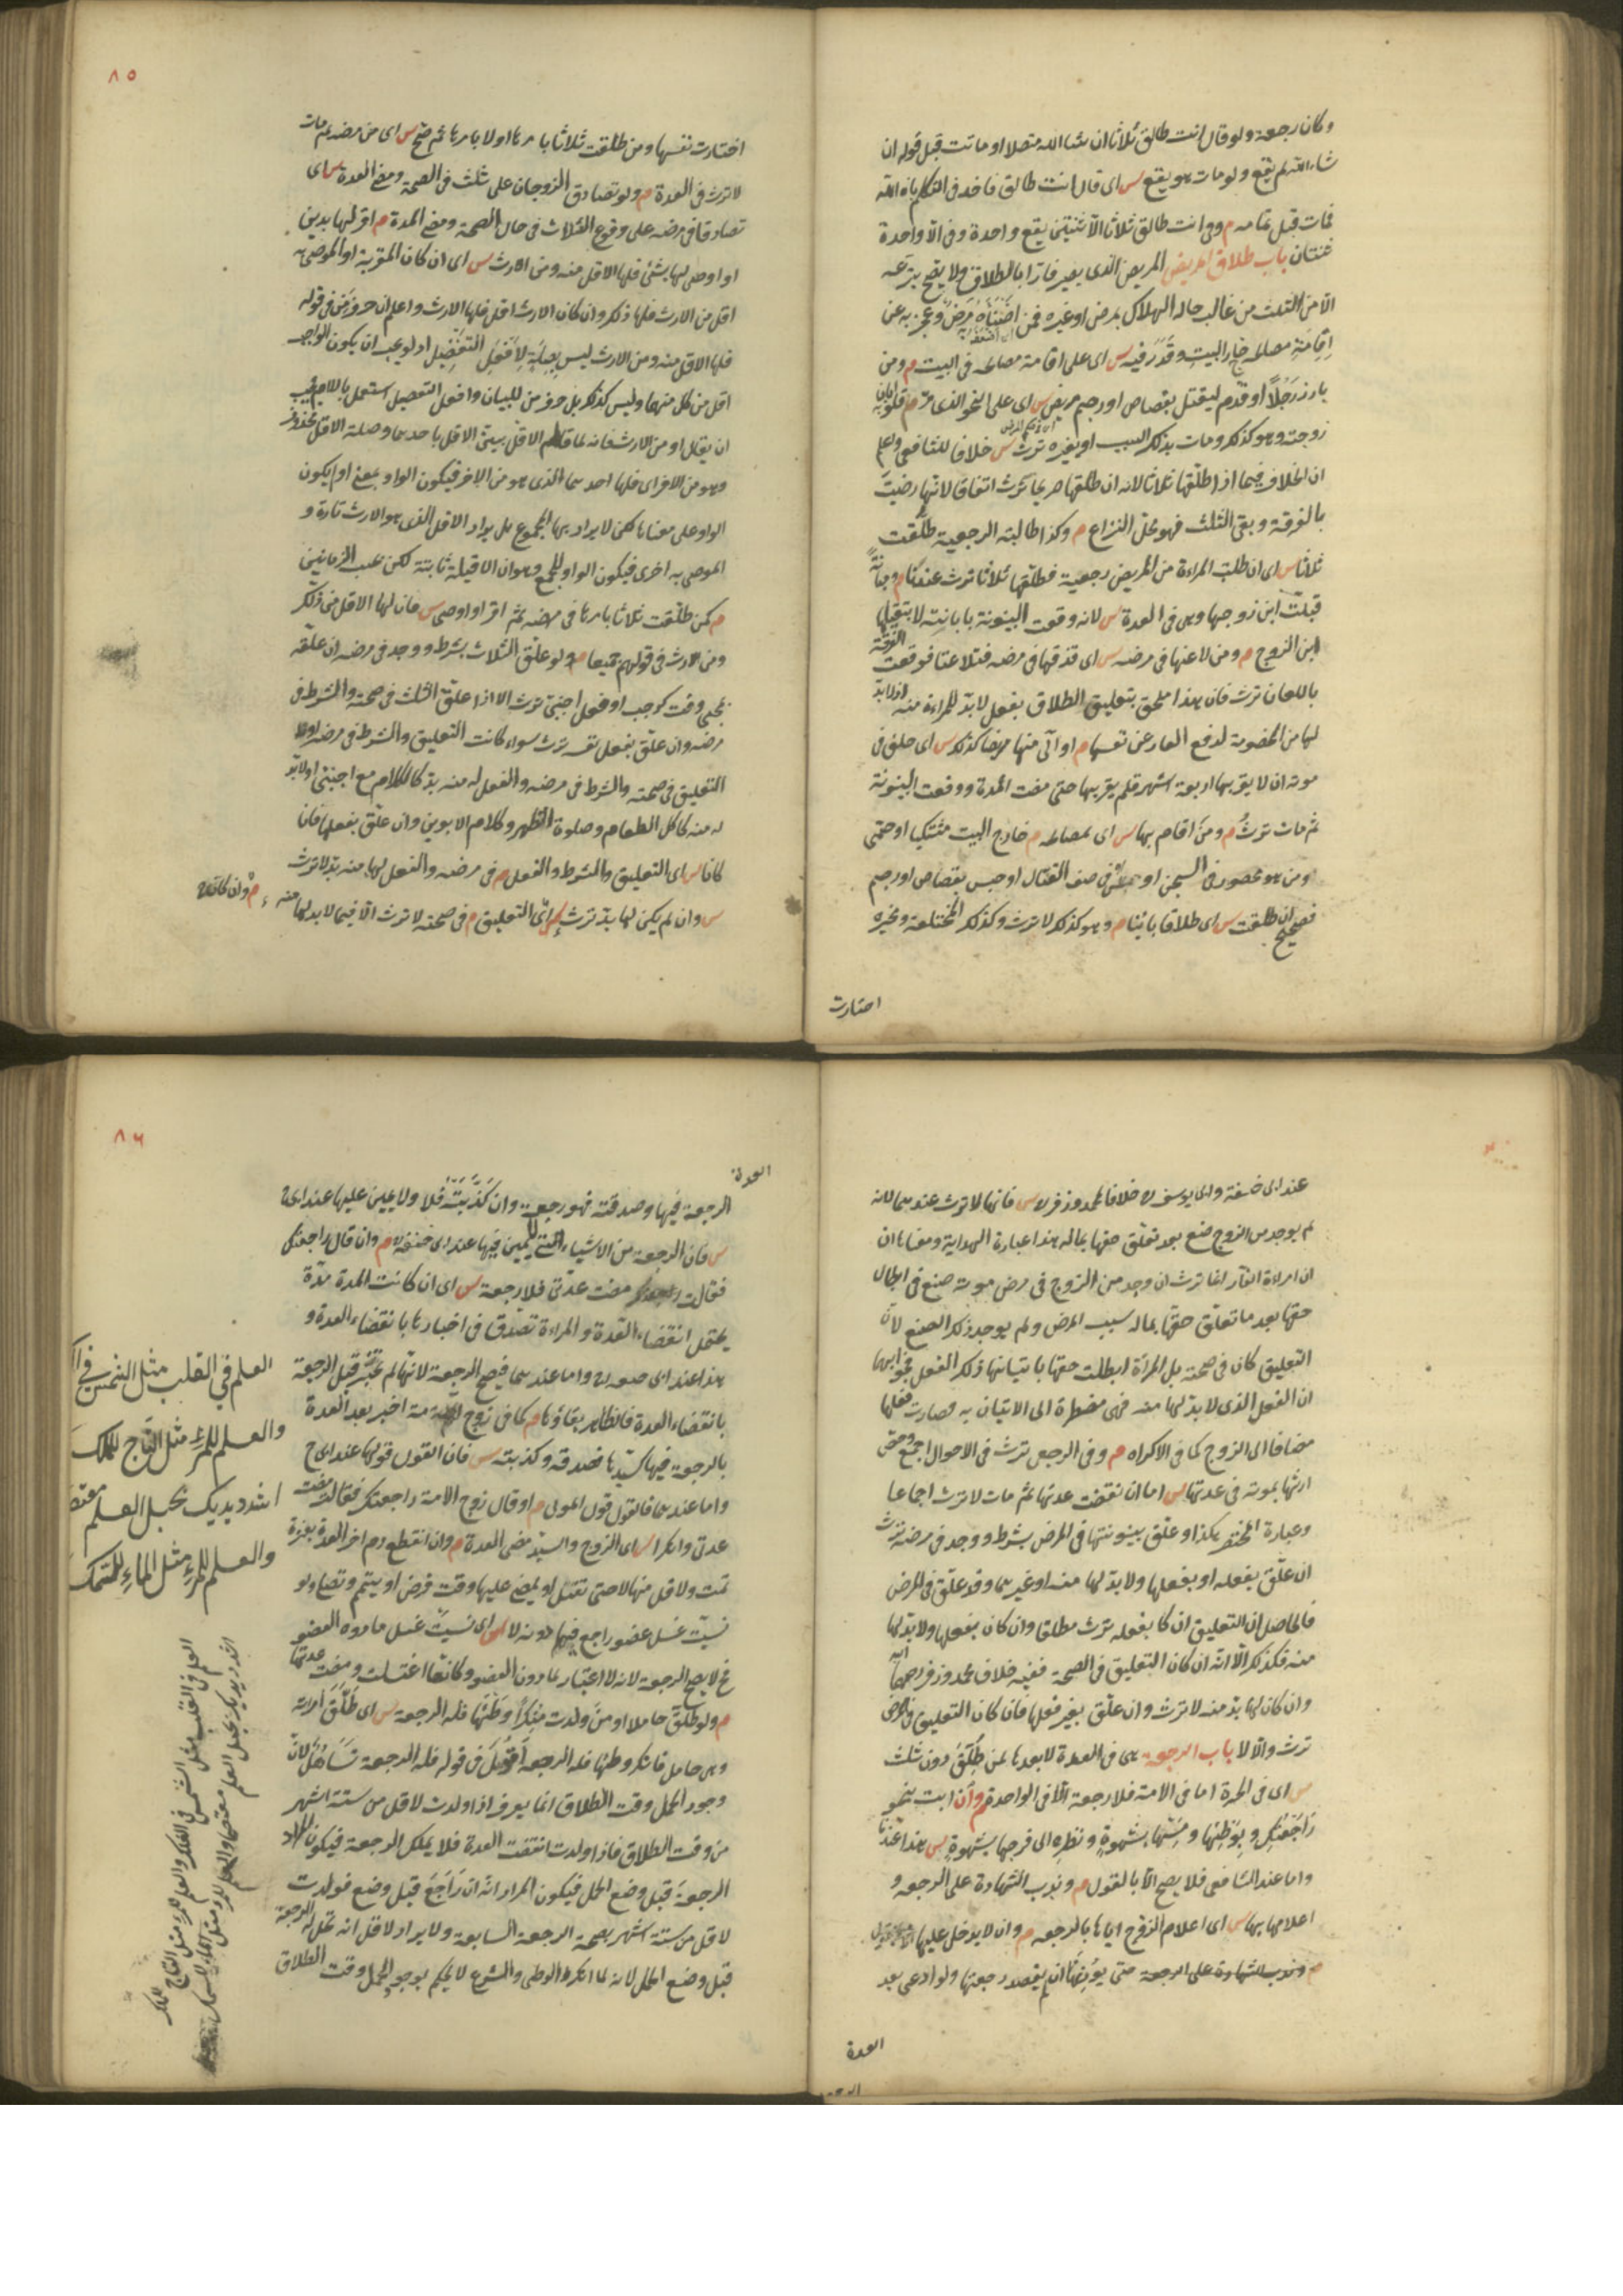 وكان رجعة ولو قال انت طالق ثلاثا ان شاء الله متصلا او ماتت قبل قوله ان
شاء الله لم يقع ولو مات هو يقع س اى قال انت طالق فاخذ فى التكلم بان شاء الله
فمات قبل تمامه م وفى انت طالق ثلاثا الا ثنتين يقع واحدة وفى الا واحدة
ثنتان باب طلاق المريض المريض الذى يصير فارا بالطلاق ولا يصح تبرعه
الا من الثلث من غالب حاله الهلاك بمرض او غيره فمن اضناه مرض وعجز به عن
اقامة مصالحه خارج البيت وقدر فيه س اى على اقامة مصالحه فى البيت م ومن
بارز رجلا او قدم ليقتل بقصاص او رجم مريض س اى على النحو الذى مر م فلو ابان
زوجته وهو كذلك ومات بذلك السبب او بغيره ترث س خلافا للشافعى واعلم
ان الخلاف فيما اذا طلقها ثلاثا لانه ان طلقها
بالفرقة وبقى الثلث فهو محل النزاع م وكذا طالبة الرجعية طلقت
ثلاثا س اى ان طلبت المراءة من المريض رجعية فطلقها ثلاثا ترث عندنا م ومبانة
قبلت ابن زوجها وهى فى العدة س لانه وقعت البينونة بابانته لا بتقبيلها
ابن الزوج م ومن لاعنها فى مرضه س اى قذفها فى مرضه فتلاعنا فوقعت الفرقة
باللعان ترث فان هذا ملحق بتعليق الطلاق بفعل لا بد للمراءة منه اذ لا بد
لها من الخصومة لدفع العار عن نفسها م او آلى منها مريضا كذلك س اى حلف فى
موته ان لا يقربها اربعة اشهر فلم يقربها حتى مضت المدة ووقعت البينونة
ثم مات ترث م ومن اقام بها س اى بمصالحه م خارج البيت مشتكيا او حمى
او من هو محصور فى السجن او فى صف القتال او حبس بقصاص او رجم
صحيح ان طلقت س اى طلاقا بائنا م وهو كذلك لا ترث وكذلك المختلعة ومخيرة
اختارت
٨٥
اختارت نفسها ومن طلقت ثلاثا بامرها او لا بامرها ثم صح س اى من مرضه ثم مات
لا ترث فى العدة م ولو تصادق الزوجان على ثلث فى الصحة ومضى العدة س اى
تصادقا فى مرضه على وقوع الثلاث فى حال الصحة ومضى المدة م اقر لها بدين
او اوصى لها بشئ فلها الاقل منه ومن الارث س اى ان كان المقر به او الموصى به
اقل من الارث فلها ذلك وان كان الارث اقل فلها الارث واعلم ان حرف من فى قوله
فلها الاقل منه ومن الارث ليس بصلة لافعل التفضيل اذ لو يجب ان يكون الواجب
اقل من كل منهما وليس كذلك بل حرف من للبيان وافعل التفضيل استعمل باللام فيجب
ان يقال او من الارث فانه لما قال فلها الاقل بين الاقل باحدهما وصلة الاقل محذوف
وهو من الاخر اى فلها احدهما الذى هو من الاخر فيكون الواو بمعنى او او يكون
الواو على معناها لكن لا يراد بها المجموع بل يراد الاقل الذى هو الارث تارة و
الموصى به اخرى فيكون الواو للجمع وهو ان الاقلية ثابتة لكن بحسب الزمانين
م كمن طلقت ثلاثا بامرها فى مرضه ثم اقر او اوصى س فان لها الاقل من ذلك
ومن الارث فى قولهم جميعا م ولو علق الثلاث بشرط ووجد فى مرضه ان علقه
بمجئ وقت كرجب او فعل اجنبى ترث الا اذا علق الثلث فى صحته والشرط فى
مرضه وان علق بفعل نفسه ترث سواء كانت التعليق والشرط فى مرضه او
التعليق فى صحته والشرط فى مرضه والفعل له منه بد كالكلام مع اجنبى او لا بد
له منه كاكل الطعام وصلوة الظهر وكلام الابوين وان علق بفعلها فان
كانا س اى التعليق والشرط والفعل م فى مرضه والفعل لها منه بد لا ترث
س وان لم يكن لها بد ترث س اى التعليق م فى صحته لا ترث الا فيما لا بد لها منه م وان كان
عند ابى حنيفة وابى يوسف خلافا لمحمد وزفر س فانها لا ترث عندهما لانه
لم يوجد من الزوج صنع بعد تعلق حقها بماله هذا عبارة الهداية ومعناها ان
ان امراءة الفار انما ترث ان وجد من الزوج فى مرض موته صنع فى ابطال
حقها بعد ما تعلق حقها بماله بسبب المرض ولم يوجد ذلك الصنع لان
التعليق كان فى صحته بل المراءة ابطلت حقها باتيانها ذلك الفعل
ان الفعل الذى لا بد لها منه فهى مضطرة الى الاتيان به فصارت فعلها
مضافا الى الزوج كما فى الاكراه م وفى الرجعى ترث فى الاحوال اجمع
ارثها بموته فى عدتها س اما ان نقضت عدتها ثم مات لا ترث اجماعا
وعبارة المختصر هكذا او علق بينونتها فى المرض بشرط ووجد فى مرضه ترث
ان علق بفعله او بفعلها ولا بد لها منه او غيرهما وقد علق فى المرض
فالحاصل ان التعليق ان كا بفعله ترث مطلقا وان كان بفعلها ولا بد لها
منه فكذلك الا انه ان كان التعليق فى الصحة ففيه خلاف محمد وزفر رحمهما الله
وان كان لها بد منه لا ترث وان علق بغير فعلها فان كان التعليق فى المرض
ترث والا لا باب الرجعة هى فى العدة لا بعدها لمن طلق دون ثلث
س اى فى الحرة اما فى الامة فلا رجعة الا فى الواحدة م وان ابت بنحو
راجعتك وبوطئها ومسها بشهوة ونظره الى فرجها بشهوة س هذا عندنا
واما عند الشافعى فلا يصح الا بالقول م وندب الشهادة على الرجعة و
اعلامها بها س اى اعلام الزوج اياها بالرجعة م وان لا يدخل عليها
م وندب الشهادة على الرجعة حتى يؤذنها ان لم يقصد رجعتها ولو ادعى بعد
العدة
٨٦
العدة
الرجعة فيها وصدقته فهو رجعة وان كذبته فلا ولا يمين عليها عند ابى ح
س فان الرجعة من الاشياء التى لا يمين فيها عند ابى حنيفة م وان قال راجعتك
فقالت مضت عدتى فلا رجعة س اى ان كانت المدة مدة
يحتمل انقضاء العدة والمراءة تصدق فى اخبارها بانقضاء العدة و
هذا عند ابى واما عندهما فيصح الرجعة لانها لم تخبر قبل الرجعة
بانقضاء العدة فالظاهر بقاؤها م كما فى زوج امة اخبر بعد العدة
بالرجعة فيها لسيدها فصدقه وكذبته س فان القول قولها عند ابى ح
واما عندهما فالقول قول المولى م او قال زوج الامة راجعتك فقالت مضت
عدتى وانكرا س اى الزوج والسيد مضى العدة م وان انقطع دم اخر العدة بعشرة
تمت ولاقل منها لا حتى تغتسل او يمضى عليها وقت فرض او يتيمم وتصلى ولو
نسيت غسل عضو راجع فيها دونه لا س اى نسيت غسل ما دون العضو
لا يصح الرجعة لانه لا اعتبار لما دون العضو وكانها اغتسلت ومضت عدتها
م ولو طلق حاملا او من ولدت منكرا وطئها فله الرجعة س اى طلق امرءته
وهى حامل فانكر وطئها فله الرجعة اقول فى قوله فله الرجعة تساهل لان
وجود الحمل وقت الطلاق انما يعرف اذا ولدت لاقل من ستة اشهر
من وقت الطلاق فاذا ولدت انقضت العدة فلا يملك الرجعة فيكون المراد
الرجعة قبل وضع الحمل فيكون المراد انه ان راجع قبل وضع فولدت
لاقل من ستة اشهر بصحة الرجعة السابعة ولا يراد لاقل انه تحل له الرجعة
قبل وضع الحمل لانه لما انكر الوطى والشرع لا يحكم بوجود الحمل وقت الطلاق
العلم فى القلب مثل الشمس فى
والعلم للمرء مثل التاج للملك
اشدد يديك بحبل العلم معتصما
والعلم للمرء مثل الماء للسمك
العلم فى القلب مثل الشمس فى الفلك والعلم للمرء مثل التاج للملك
اشدد يديك بحبل العلم معتصما والعلم للمرء مثل الماء للسمك